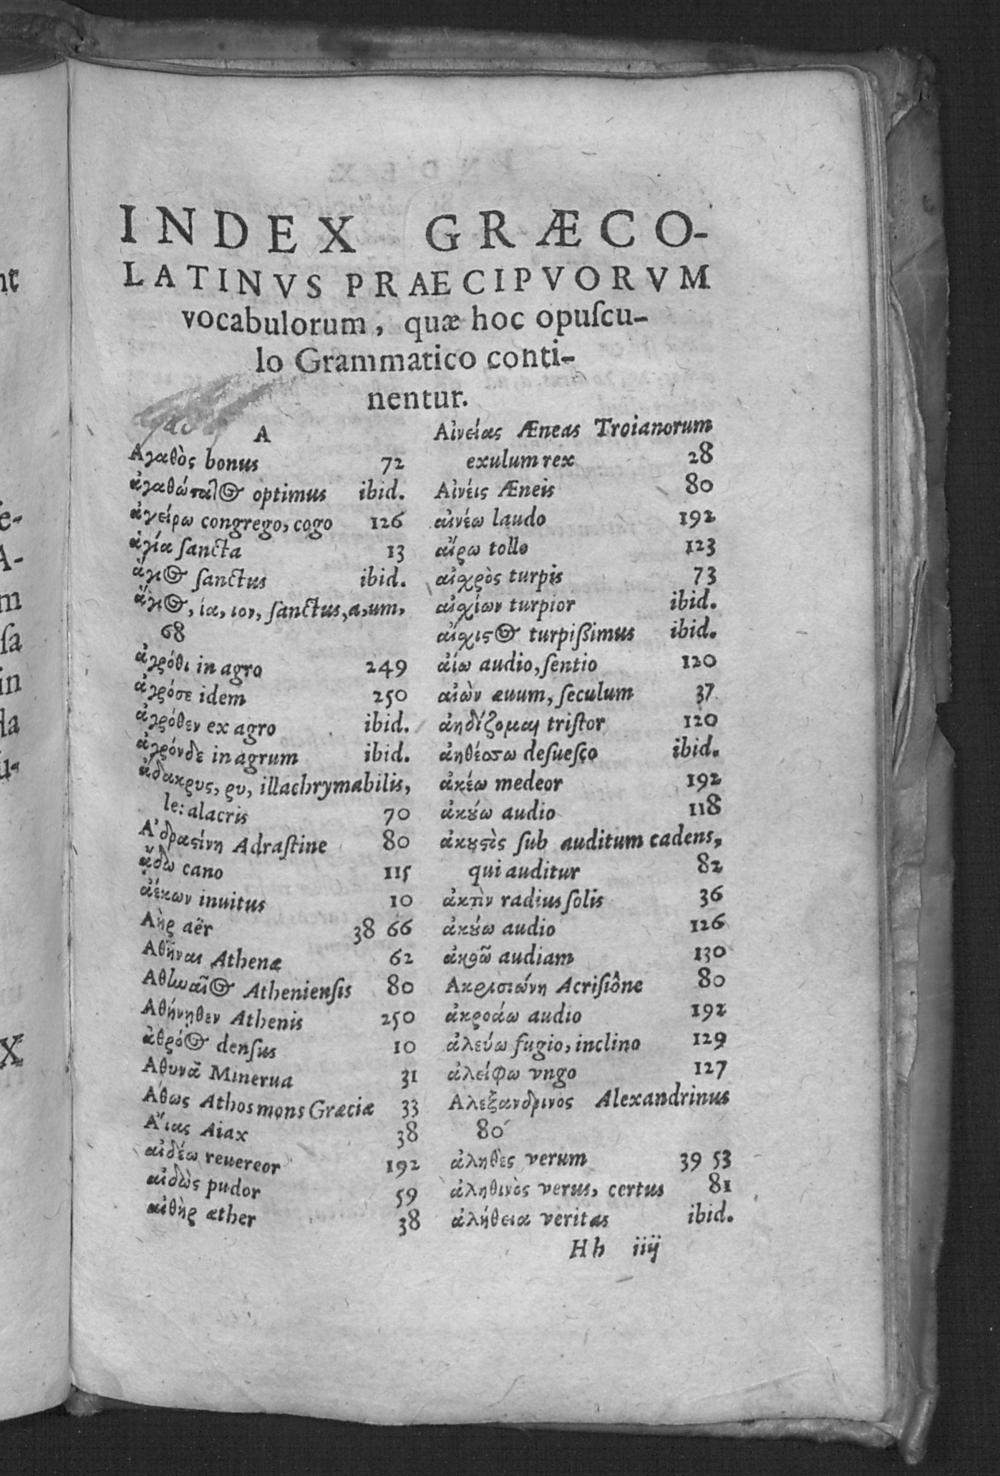 INDEX GRÆCO-
LATINVS PRAECIPVORVM
vocabulorum, quæ hoc opuscu-
lo Grammatico conti-
nentur.
A
Αγαθὸς bonus 72
ἀγαθώτατος optimus ibid.
ἀγείρω congrego, cogo 126
ἁγία sancta 13
ἅγιος sanctus ibid.
ἅγιος, ία, ιον, sanctus, a, um,
68
ἀγρόθι in agro 249
ἀγρόσε idem 250
ἀγρόθεν ex agro ibid.
ἀγρόνδε in agrum ibid.
ἄδακρυς, ρυ, illachrymabilis,
le: alacris 70
Α᾿δραςίνη Adrastine 80
ᾄδω cano 115
ἀέκων inuitus 10
Αὴρ aër 38 66
Αθῆναι Athenæ 62
Αθηναῖος Atheniensis 80
Αθήνηθεν Athenis 250
ἀθρόος densus 10
Αθυνᾶ Minerua 31
Αθως Athos mons Græciæ 33
Αἴας Aiax 38
αἰδέω reuereor 192
αἰδὼς pudor 59
αἰθὴρ æther 38
Αἰνείας Æneas Troianorum
exulum rex 28
Αἰνέις Æneis 80
αἰνέω laudo 192
αἴρω tollo 123
αἰχρὸς turpis 73
αἰχίων turpior ibid.
αἴχιςος turpissimus ibid.
ἀίω audio, sentio 120
αἰὼν æuum, seculum 37
ἀηδίζομαι tristor 120
ἀηθέσσω desuesco ibid.
ἀκέω medeor 192
ἀκούω audio 118
ἀκουςὲς sub auditum cadens,
qui auditur 82
ἀκτὶν radius solis 36
ἀκούω audio 126
ἀκοῶ audiam 130
Ακρισιώνη Acrisiône 80
ἀκροάω audio 192
ἀλεύω fugio, inclino 129
ἀλείφω vngo 127
Αλεξανδρινὸς Alexandrinus
80
ἀληθὲς verum 39 53
ἀληθινὸς verus, certus 81
ἀλήθεια veritas ibid.
Hh iiij